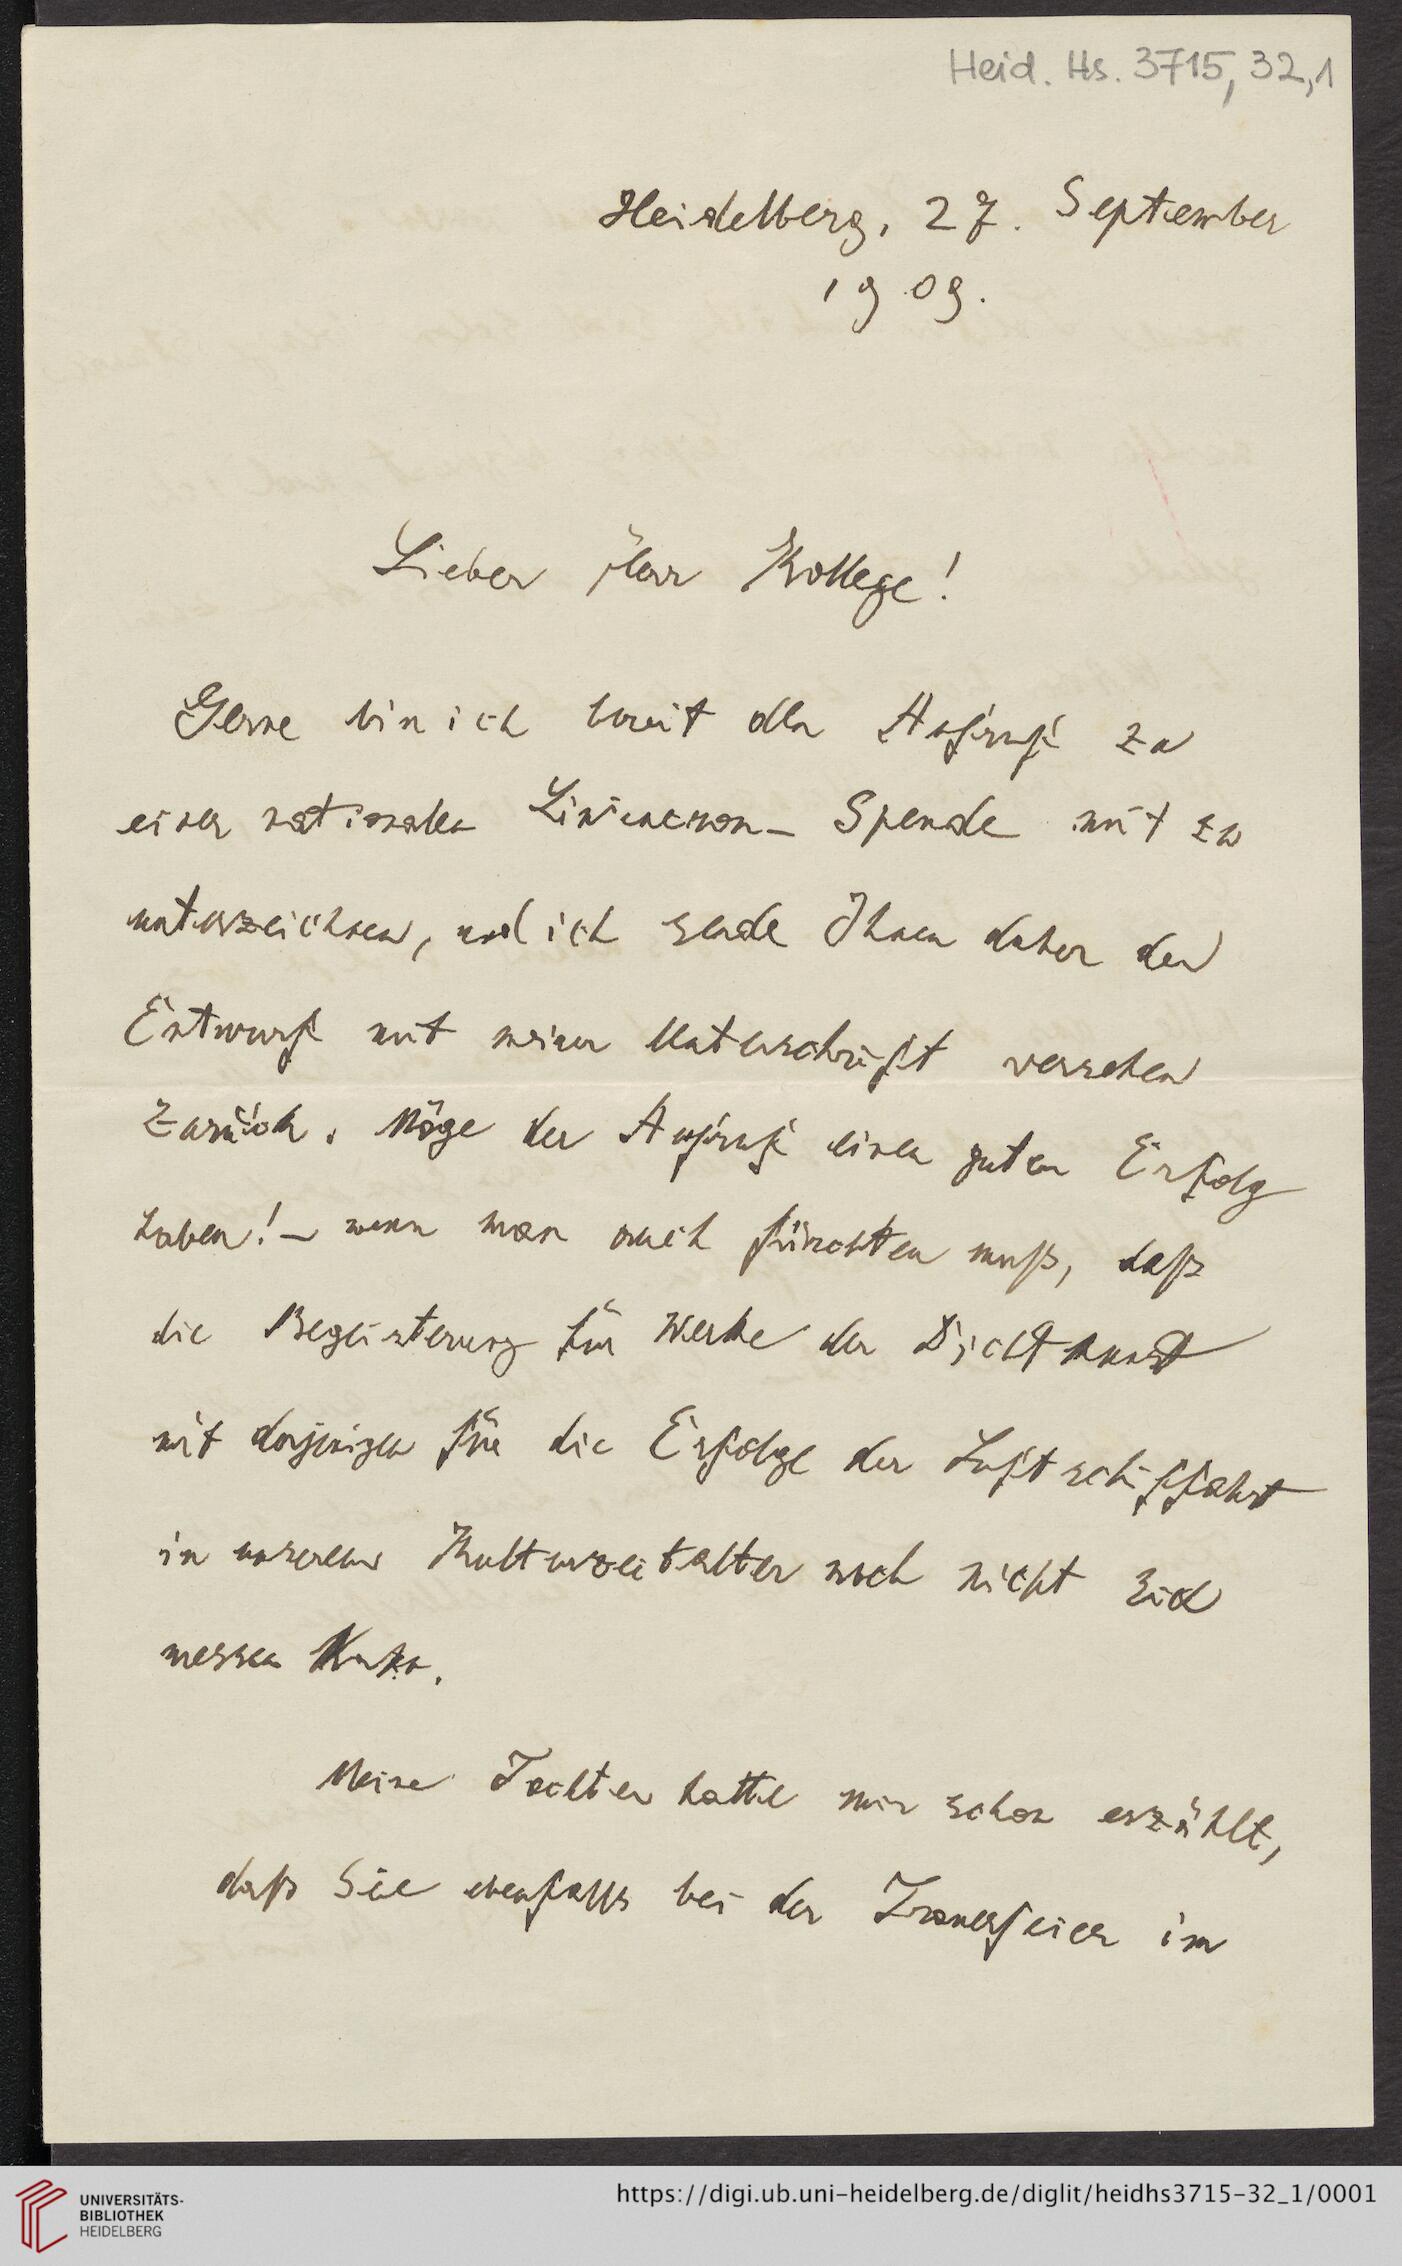 Heid. Hs. 3715, 32,1
Heidelberg, 27. September
1909.
Lieber Herr Kollege!
Gerne bin ich bereit den Aufruf zu
einer nationalen Liliencron- Spende mit zu
unterzeichnen, und ich sende Ihnen daher den
Entwurf mit meiner Unterschrift versehen
zurück. Möge der Aufruf einen guten Erfolg
haben! – wenn man auch fürchten muß, daß
die Begeisterung für Werke der Dichtkunst
mit derjenigen für die Erfolge der Luftschiffahrt
in unserem Kulturzeitalter noch nicht sich
messen kann.
Meine Tochter hatte mir schon erzählt,
daß Sie ebenfalls bei der Trauerfeier im
UNIVERSITÄTS-
BIBLIOTHEK
HEIDELBERG
https://digi.ub.uni-heidelberg.de/diglit/heidhs3715-32_1/0001